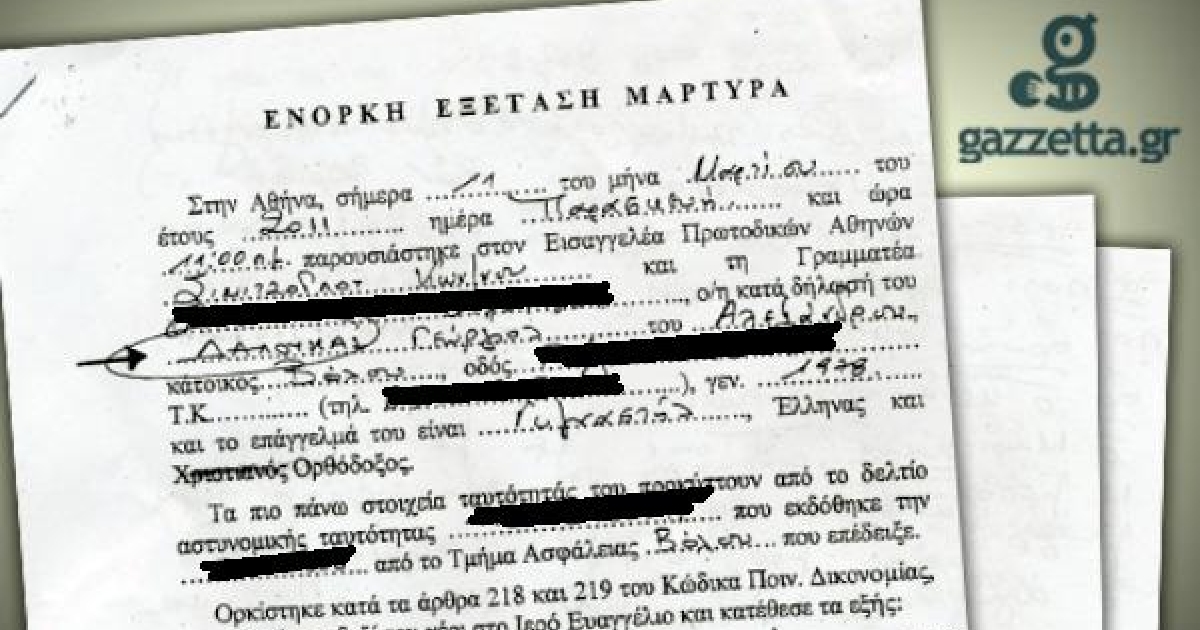 gazzetta.gr
ΕΝΟΡΚΗ ΕΞΕΤΑΣΗ ΜΑΡΤΥΡΑ
Στην Αθήνα, σήμερα ...11... του μήνα Μαρτίου... του
έτους ...2011... ημέρα ...Παρασκευή... και ώρα
..11:00 π.μ. παρουσιάστηκε στον Εισαγγελέα Πρωτοδικών Αθηνών
και τη Γραμματέα
......, ο/η κατά δήλωσή του
Γεώργιος......του ...Αλεξάνδρου..,
κάτοικος...Βόλου..., οδός......
Τ.Κ........... (τηλ. ......), γεν. ...1978......
και το επάγγελμά του είναι ......, Έλληνας και
Χριστιανός Ορθόδοξος.
Τα πιο πάνω στοιχεία ταυτότητάς του προκύπτουν από το δελτίο
αστυνομικής ταυτότητας ...... που εκδόθηκε την
...... από το Τμήμα Ασφάλειας ..Βόλου... που επέδειξε.
Ορκίστηκε κατά τα άρθρα 218 και 219 του Κώδικα Ποιν. Δικονομίας,
στο Ιερό Ευαγγέλιο και κατέθεσε τα εξής: